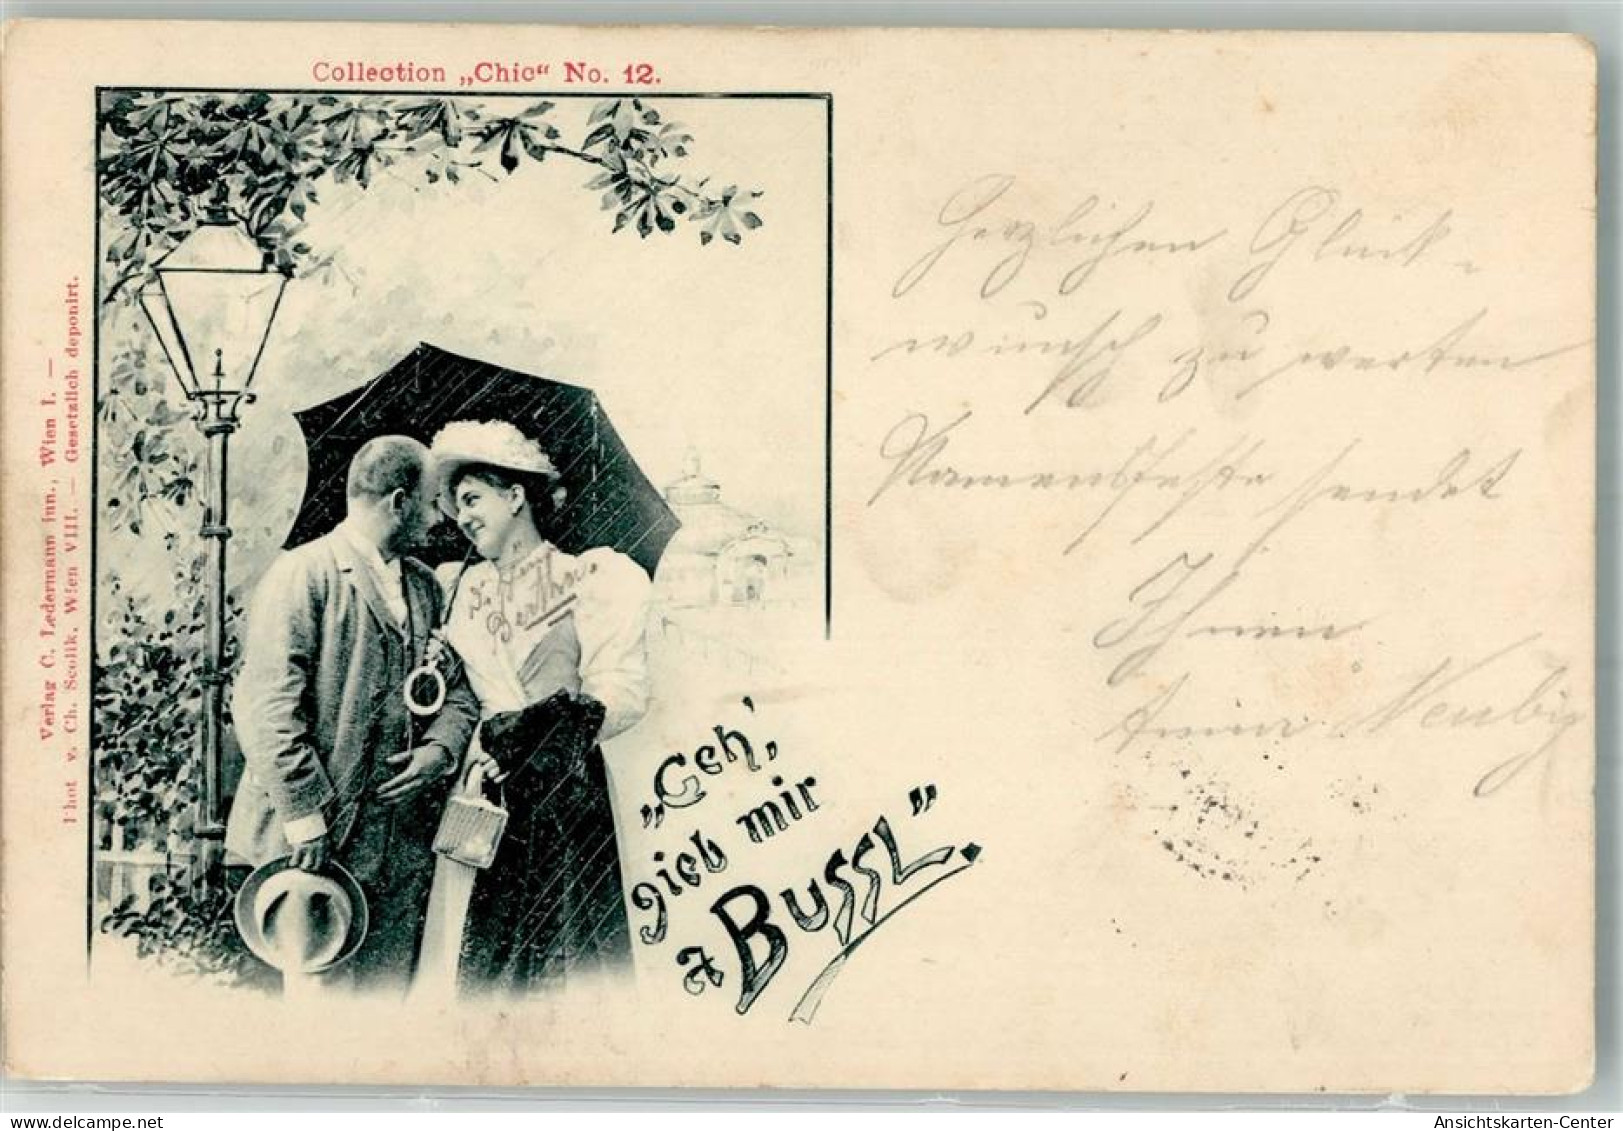 Collection „Chic“ No. 12.
Verlag C. Ledermann jun., Wien I. —
Phot v. Ch. Scolik, Wien VIII. — Gesetzlich deponirt.
Herzlichen Glück-
wunsch zu werten
Namensfeste sendet
Ihnen
Neubig
Bertha.
„Geh',
gieb mir
a Bussl.“
Ansichtskarten-Center